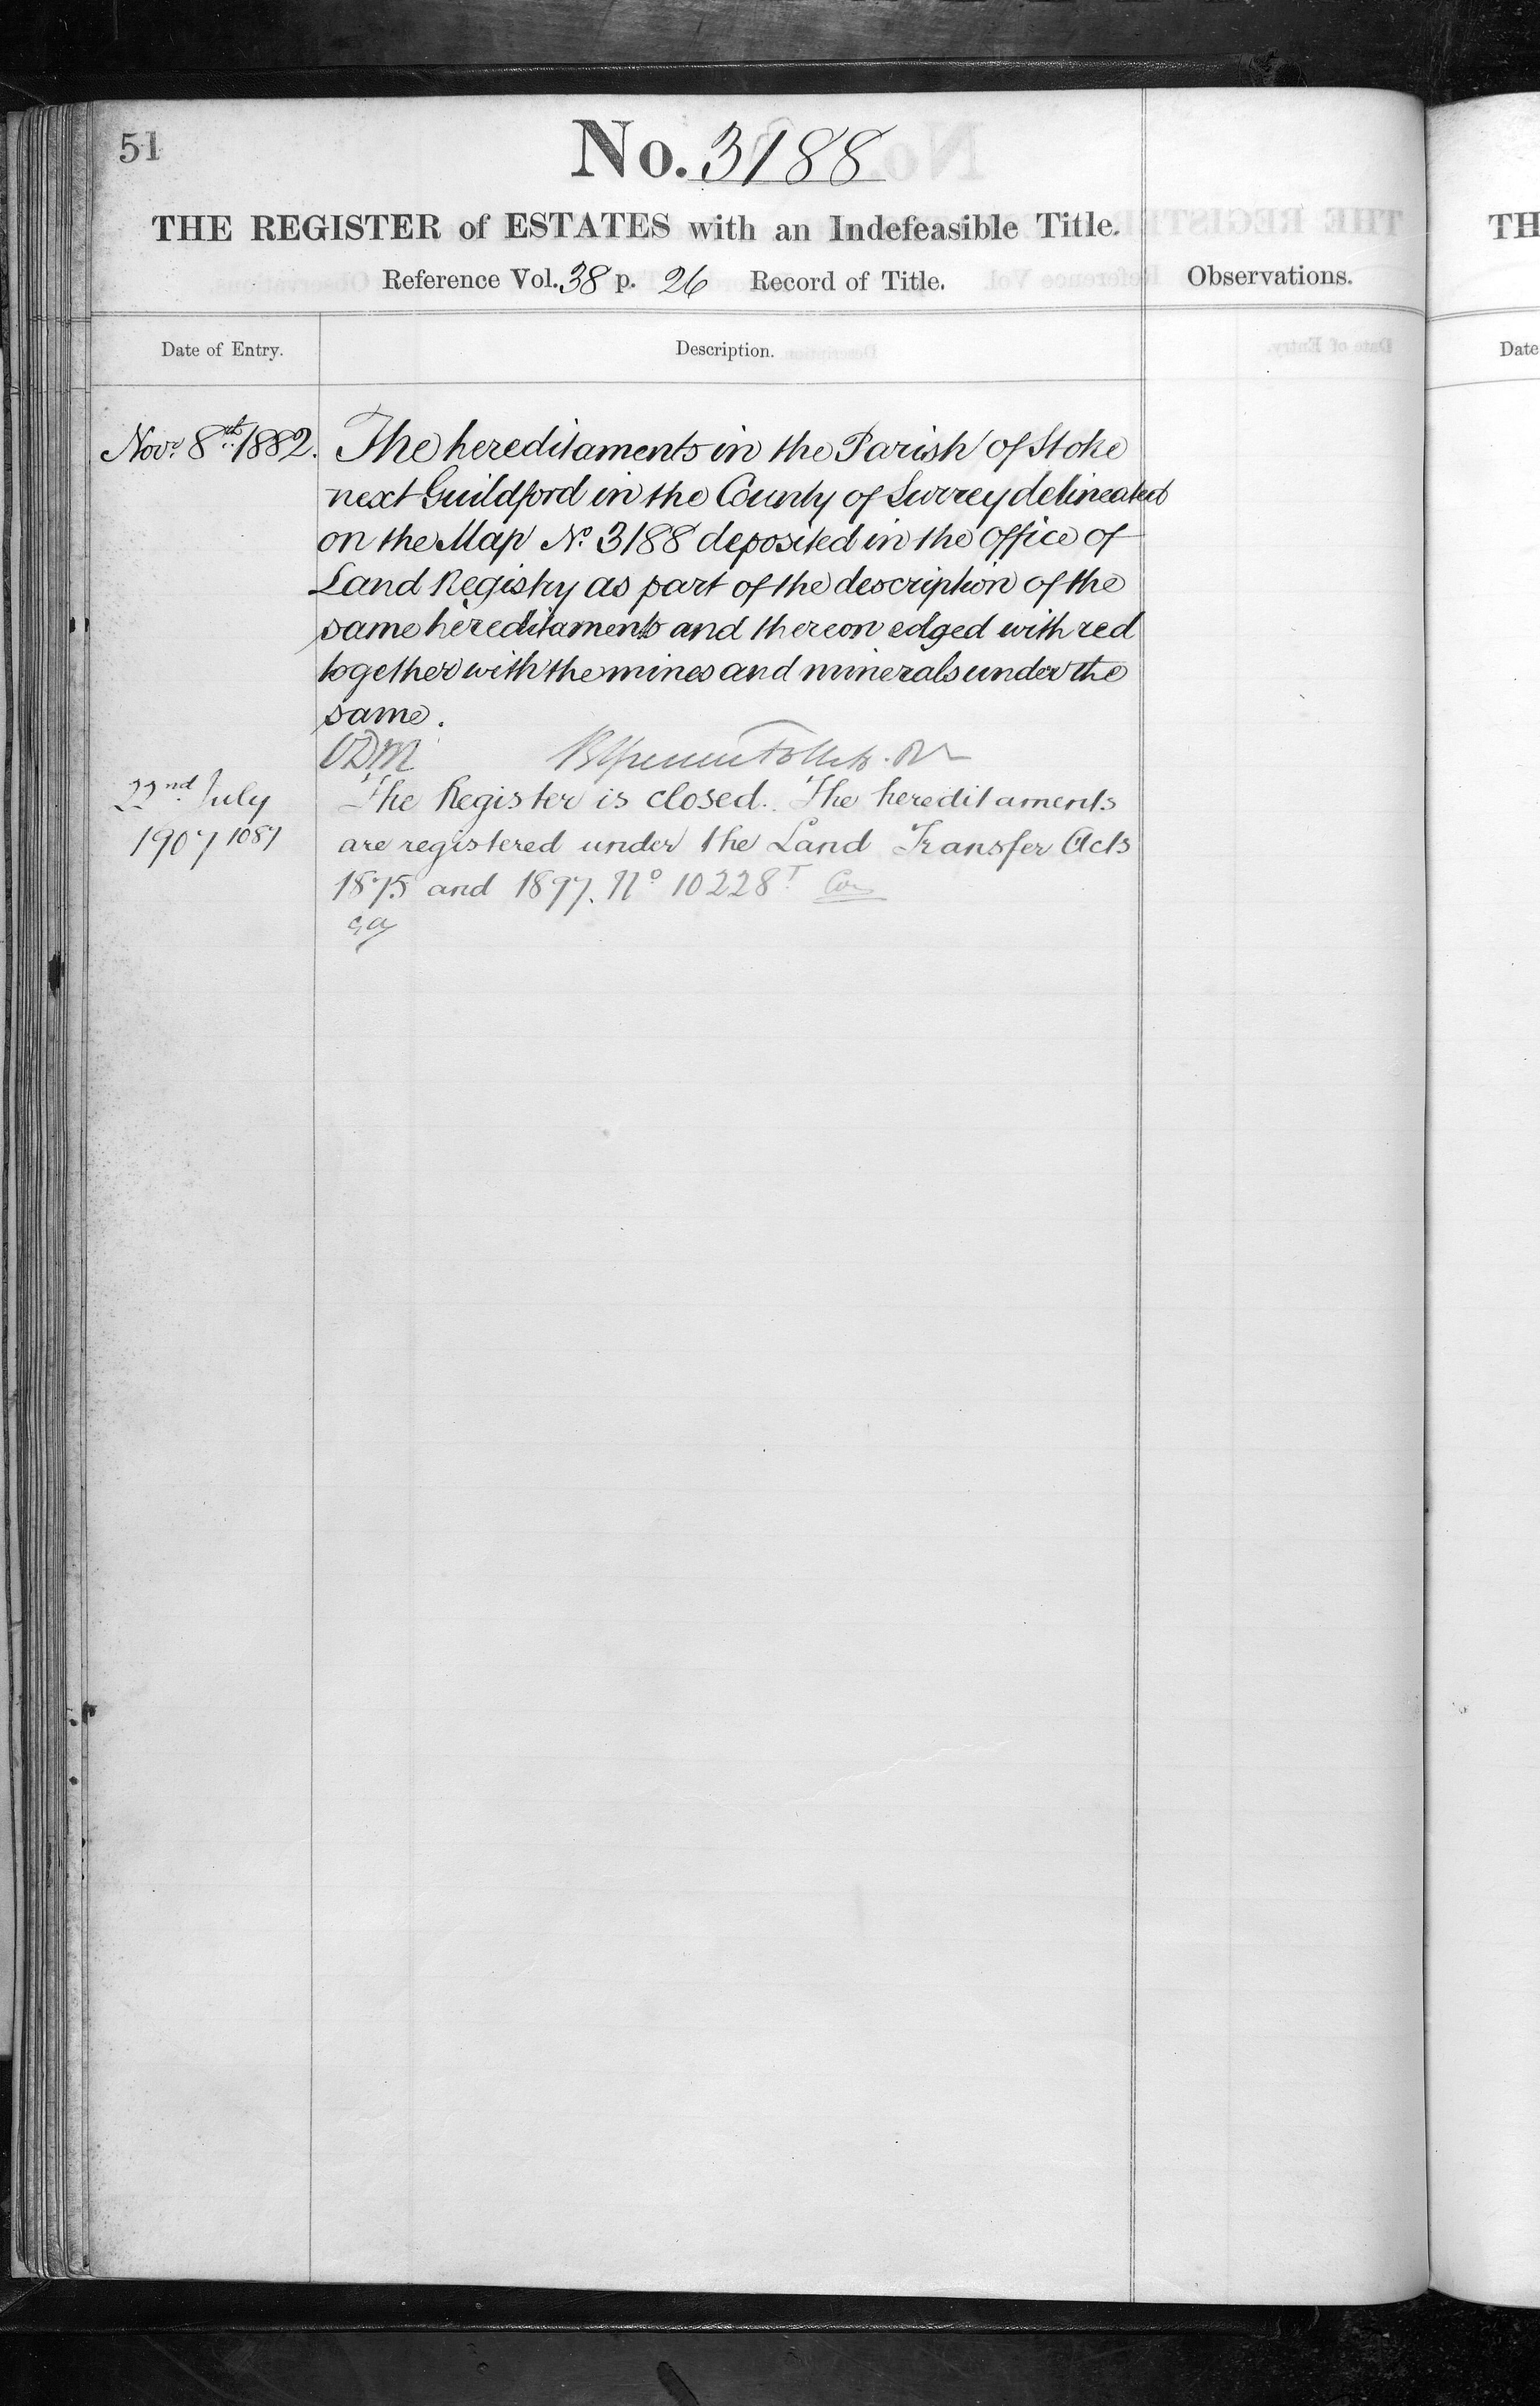 51
No. 3188
THE REGISTER of ESTATES with an Indefeasible Title.
Reference Vol. 38 p. 26 Record of Title.
Observations.
Date of Entry.
Description.
Novr. 8th. 1882.
The hereditaments in the Parish of Stoke
next Guildford in the County of Surrey delineated
on the Map No. 3188 deposited in the Office of
Land Registry as part of the description of the
same hereditaments and thereon edged with red
together with the mines and minerals under the
same.
22nd July
1907 1081
The Register is closed. The hereditaments
are registered under the Land Transfer Acts
1875 and 1897. No 10228T
TH
Date